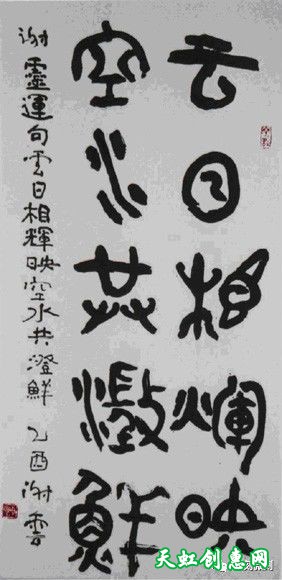 云日相煇映
空水共澂鮮
谢靈運句雲日相輝映空水共澄鮮 乙酉谢雲
天虹创惠网